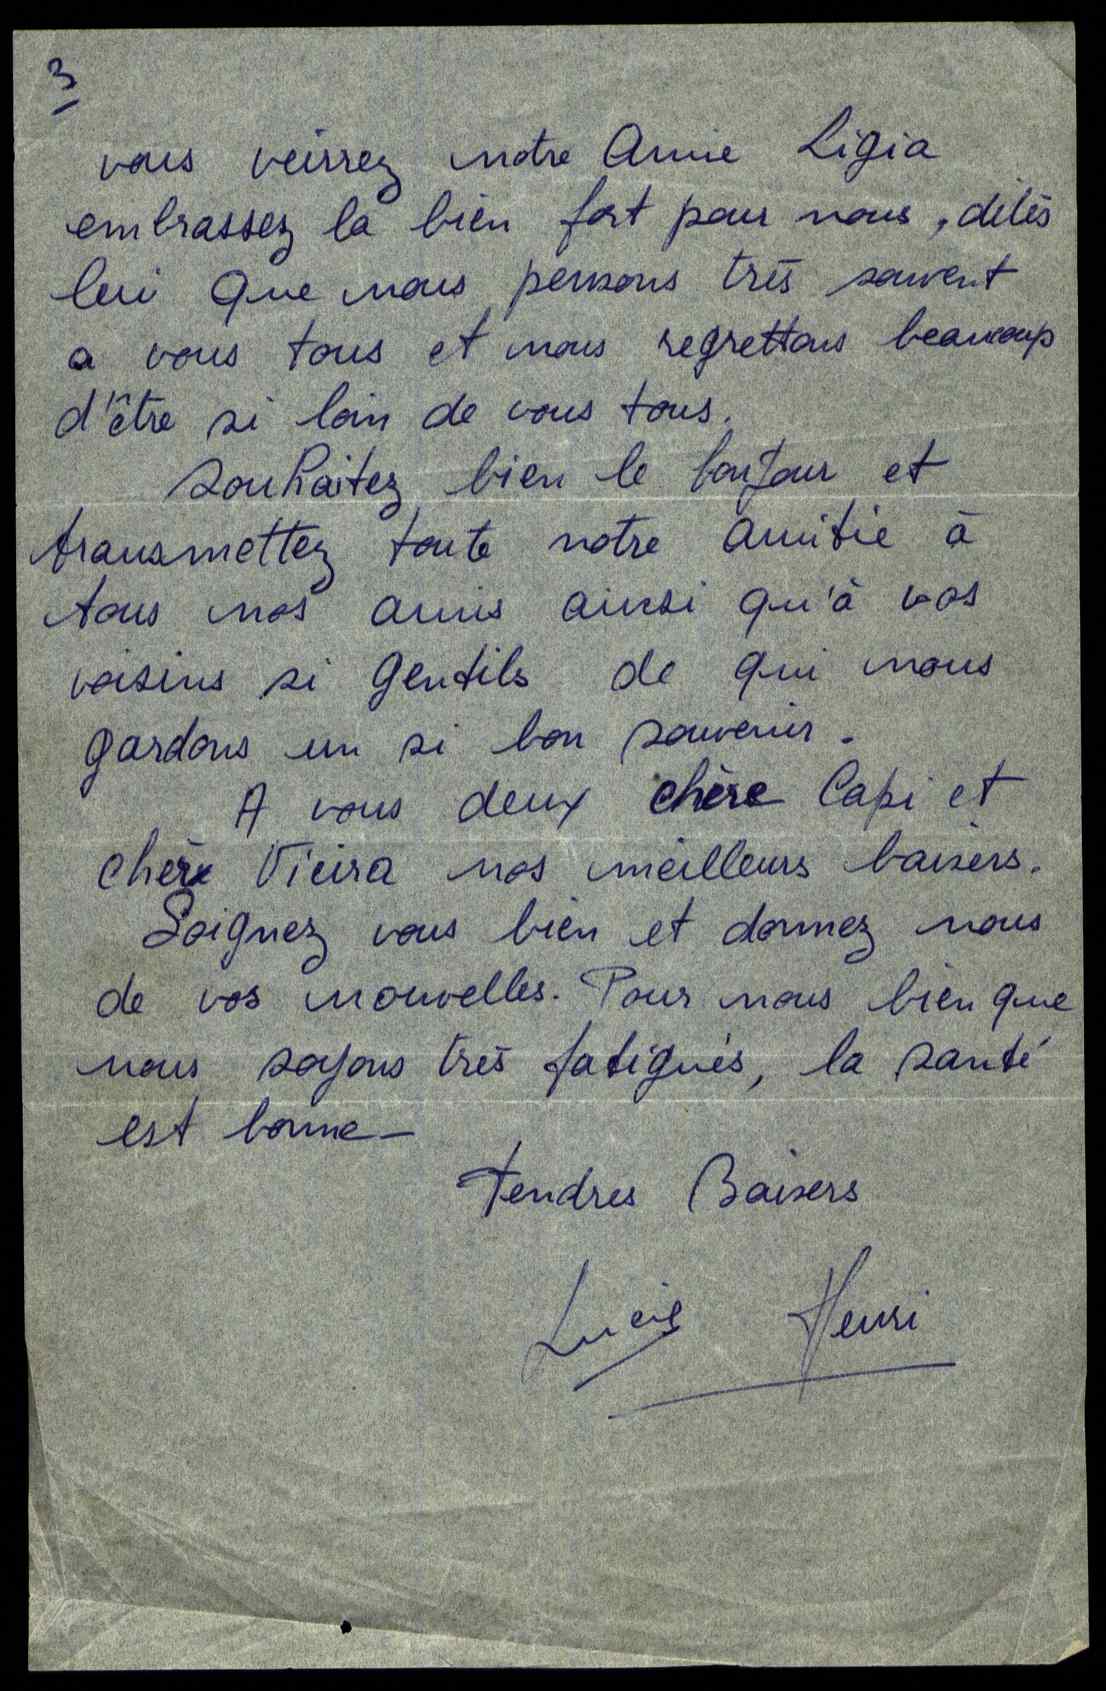 3
vous veirrez notre Amie Ligia
embrassez la bien fort pour nous, dites
lui que nous pensons très souvent
a vous tous et nous regrettons beaucoup
d'être si loin de vous tous.
Souhaitez bien le bonjour et
transmettez toute notre amitie à
tous nos amis ainsi qu'à vos
voisins si gentils de qui nous
gardons un si bon souvenir.
A vous deux chère Capi et
chère Vieira nos meilleurs baisers.
Soignez vous bien et donnez nous
de vos nouvelles. Pour nous bien que
nous soyons très fatigués, la santé
est bonne—
Tendres Baisers
Henri